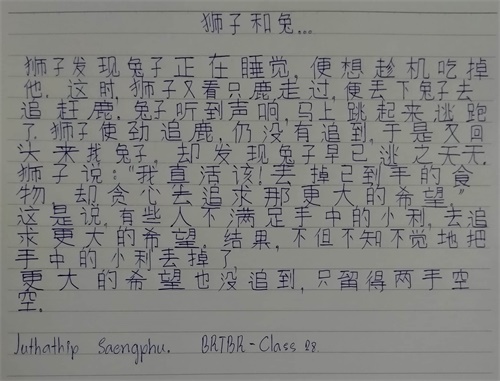 狮子和兔...
狮子发现兔子正在睡觉，便想趁机吃掉
他。这时，狮子又看只鹿走过，便丢下兔子去
追赶鹿。兔子听到声响，马上跳起来逃跑
了。狮子使劲追鹿，仍没有追到，于是又回
头来找兔子，却发现兔子早已逃之夭夭。
狮子说："我真活该！去掉已到手的食
物，却贪心去追求那更大的希望。"
这是说，有些人不满足手中的小利，去追
求更大的希望。结果，不但不知不觉地把
手中的小利去掉了
更大的希望也没追到，只留得两手空
空.
Juthathip Saengphu. BRTBR-Class 28.